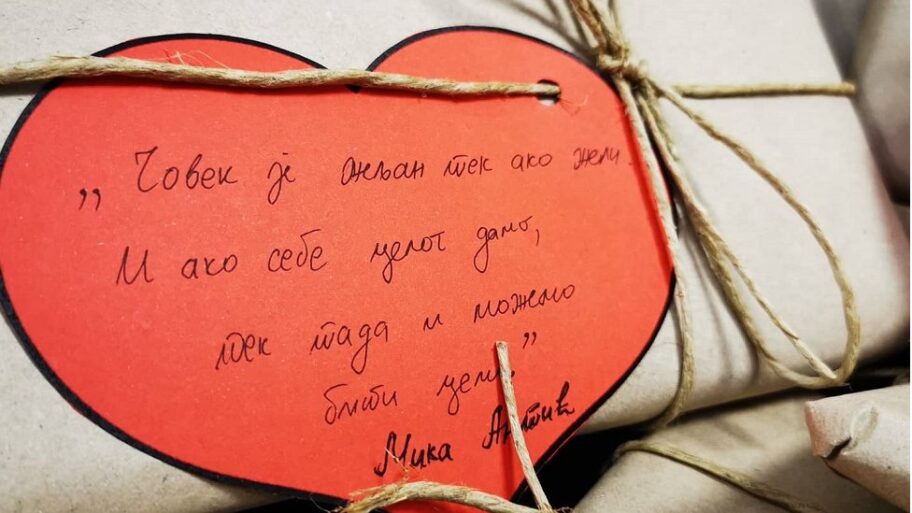 „Човек је жељан тек ако жели.
И ако себе целог дамо,
тек тада и можемо
бити цели.”
Мика Антић